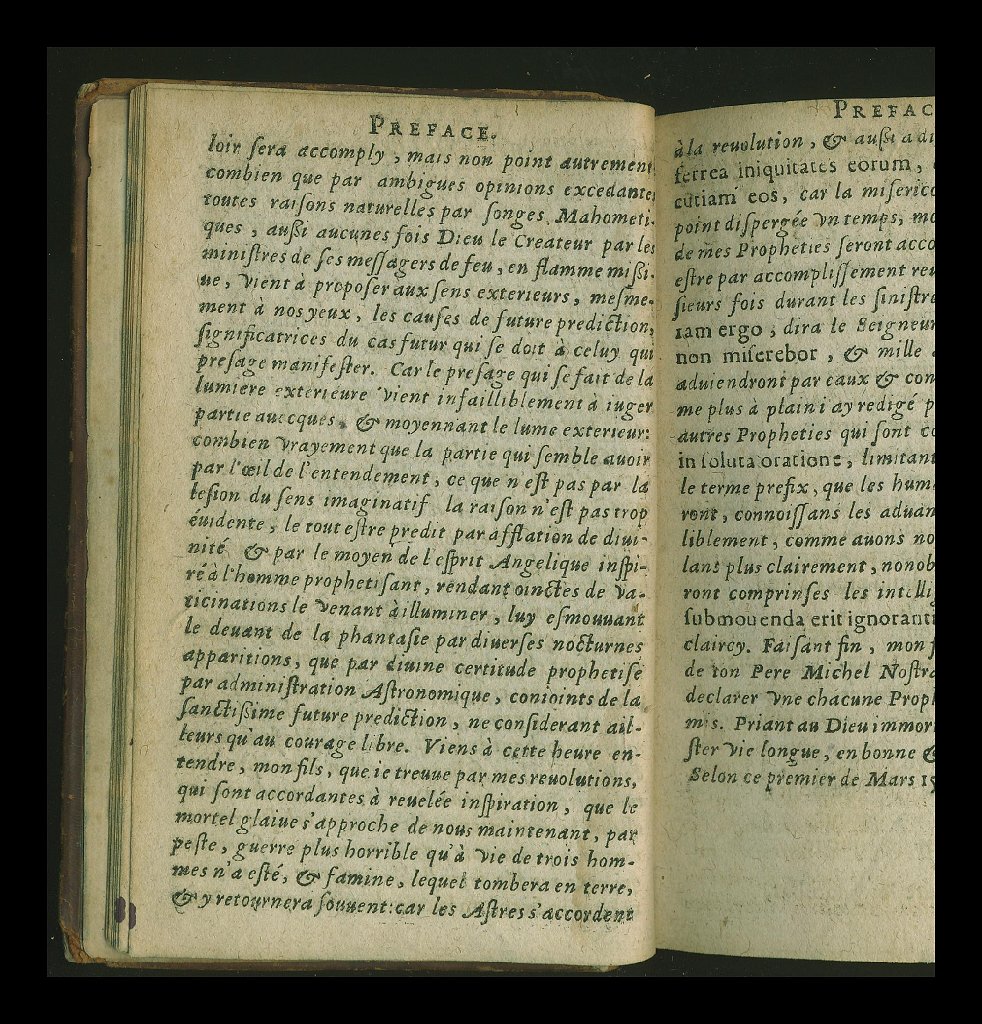 PREFACE.
loir ſera accomply, mais non point autrement
combien que par ambigues opinions excedantes
toutes raiſons naturelles par ſonges Mahometi-
ques, außi aucunes fois Dieu le Createur par les
miniſtres de ſes meſſagers de feu, en flamme mißi-
ue, vient à propoſer aux ſens exterieurs, meſme-
ment à nos yeux, les cauſes de future prediction,
ſignificatrices du cas futur qui ſe doit à celuy qui
preſage manifeſter. Car le preſage qui ſe fait de la
lumiere exterieure vient infailliblement à iuger
partie auecques, & moyennant le lume exterieur:
combien vrayement que la partie qui ſemble auoir
par l'œil de l'entendement, ce que n'eſt pas par la
leſion du ſens imaginatif la raiſon n'eſt pas trop
euidente, le tout eſtre predit par afflation de diui-
nité & par le moyen de l'eſprit Angelique inſpi-
ré à l'homme prophetiſant, rendant oinctes de va-
ticinations le venant à illuminer, luy eſmouuant
le deuant de la phantaſie par diuerſes nocturnes
apparitions, que par diuine certitude prophetiſe
par adminiſtration Aſtronomique, conioints de la
ſanctißime future prediction, ne conſiderant ail-
leurs qu'au courage libre. Viens à cette heure en-
tendre, mon fils, que ie treuue par mes reuolutions,
qui ſont accordantes à reuelée inſpiration, que le
mortel glaiue s'approche de nous maintenant, par
peſte, guerre plus horrible qu'à vie de trois hom-
mes n'a eſté, & famine, lequel tombera en terre,
& y retournera ſouuent: car les Aſtres s'accordent
PREFAC
à la reuolution, & außi a di
ferrea iniquitates eorum,
cutiam eos, car la miſerico
point diſpergée vn temps, mo
de mes Propheties ſeront acco
eſtre par accompliſſement reu
ſieurs fois durant les ſiniſtre
iam ergo, dira le Seigneur
non miſerebor, & mille
aduiendront par eaux & con
me plus à plain i ay redigé p
autres Propheties qui ſont co
in ſoluta oratione, limitant
le terme prefix, que les hum
ront, connoiſſans les aduan
liblement, comme auons no
lans plus clairement, nonob
ront comprinſes les intellig
ſubmouenda erit ignoranti
claircy. Faiſant fin, mon f
de ton Pere Michel Noſtra
declarer vne chacune Proph
mis. Priant au Dieu immor
ſter vie longue, en bonne &
Selon ce premier de Mars 15